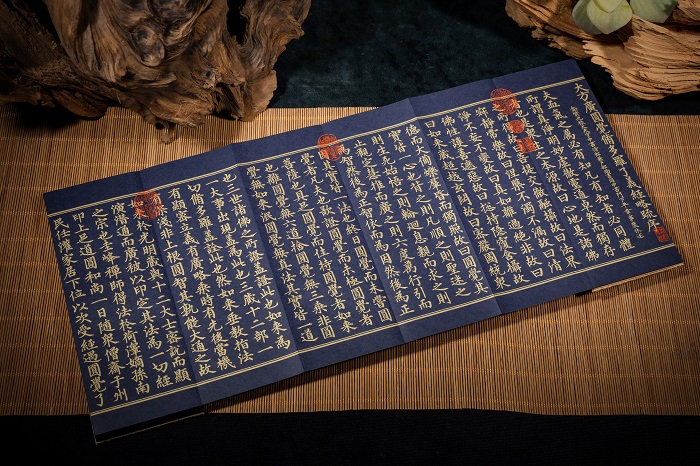 大方廣圓覺修多羅了義經略疏序
夫血氣之屬必有知凡有知者必同體
所謂真淨明妙虛徹靈通卓然而獨存
者也是眾生之本源故曰心地是諸佛
之所得故曰菩提交徹融攝故曰法界
寂靜常樂故曰涅槃不濁不漏故曰清
淨不妄不變故曰真如離過絕非故曰
佛性護善遮惡故曰總持隱覆含攝故
曰如來藏超越玄閟故曰密嚴國統眾
德而大備爍群昏而獨照故曰圓覺其
實皆一心也背之則凡順之則聖迷之
則生死始悟之則輪迴息親而求之則
止觀定慧推而廣之則六度萬行引而
為智然後為正智依而為因然後為正
因其實皆一法也終日圓覺而未嘗圓
覺者凡夫也欲證圓覺而未極圓覺者
菩薩也具足圓覺而住持圓覺者如來
也離圓覺無六道捨圓覺無三乘非圓
覺無如來泯圓覺無真法其實皆一道
也三世諸佛之所證蓋證此也如來為
一大事出現蓋為此也三藏十二部一
切脩多羅蓋詮此也然如來垂教指法
有顯密立義有廣略乘時有先後當機
有深淺非上根圓智其孰能大通之故
如來於光明藏與十二大士密說而顯
演潛通而廣被以印定其法為一切經
之宗也圭峰禪師得法於荷澤嫡孫南
印上足道圓和尚一日隨眾僧齋于州
民任灌家居下位以次受經遇圓覺了